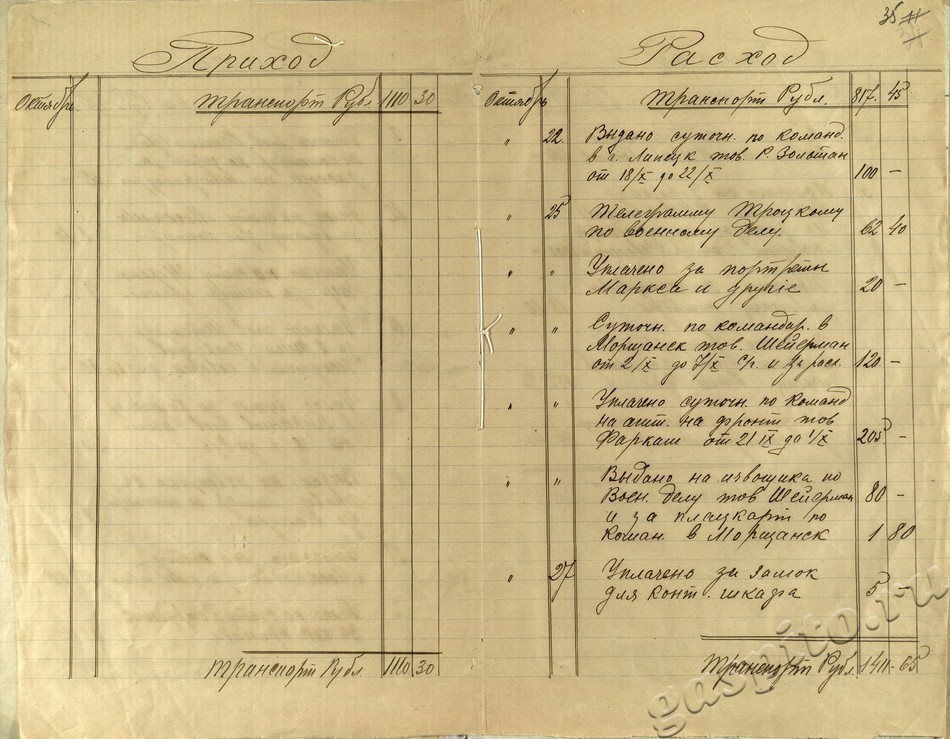 35
Приход
Октябрь Транспорт Рубл. 1110 30
Транспорт Рубл. 1110 30
Расход
Октябрь Транспорт Рубл. 817. 45
" 22. Выдано суточн. по команд.
в г. Липецк тов. Р. Зольтан
от 18/X до 22/X 100 —
" 25 Телеграмму Троцкому
по военному делу. 62 40
" " Уплачено за портреты
Маркса и другіе 20 —
" " Суточн. по командир. в
Моршанск тов. Шейерман
от 2/X до 7/X с/г. и за расх. 120 —
" " Уплачено суточн. по команд
на агит. на фронт тов
Фаркаш от 21 IX до 1/X 205 —
" " Выдано на извощика по
Воен. делу тов Шейерман 80 —
и за плацкарт по
коман. в Моршанск 1 80
" 27 Уплачено за замок
для конт. шкафа 5 —
Транспорт Рубл. 1411 - 65
gaspito.ru